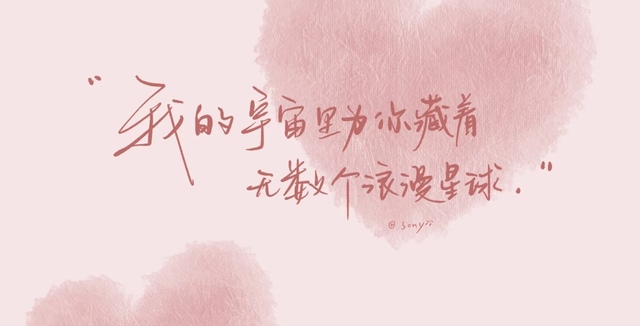 “我的宇宙里为你藏着
无数个浪漫星球.”